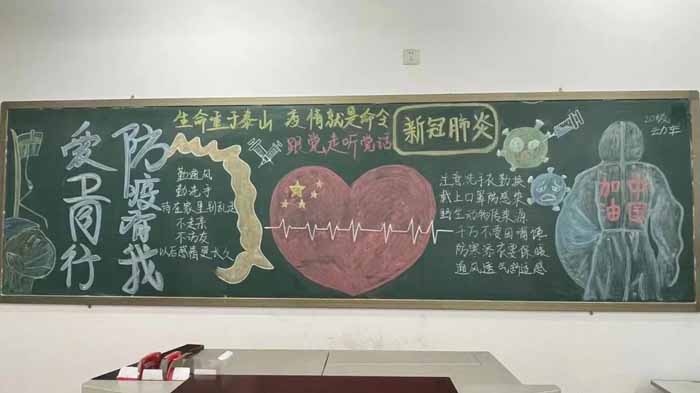 防疫有我
爱卫同行
生命重于泰山 疫情就是命令
跟党走听党话
新冠肺炎
勤通风
勤洗手
待在家里别乱走
不走亲
不访友
以后感情更长久
注意洗手衣勤换
戴上口罩防感染
野生动物传染源
千万不要因嘴馋
防寒添衣要保暖
通风透气
中国
加油
20级